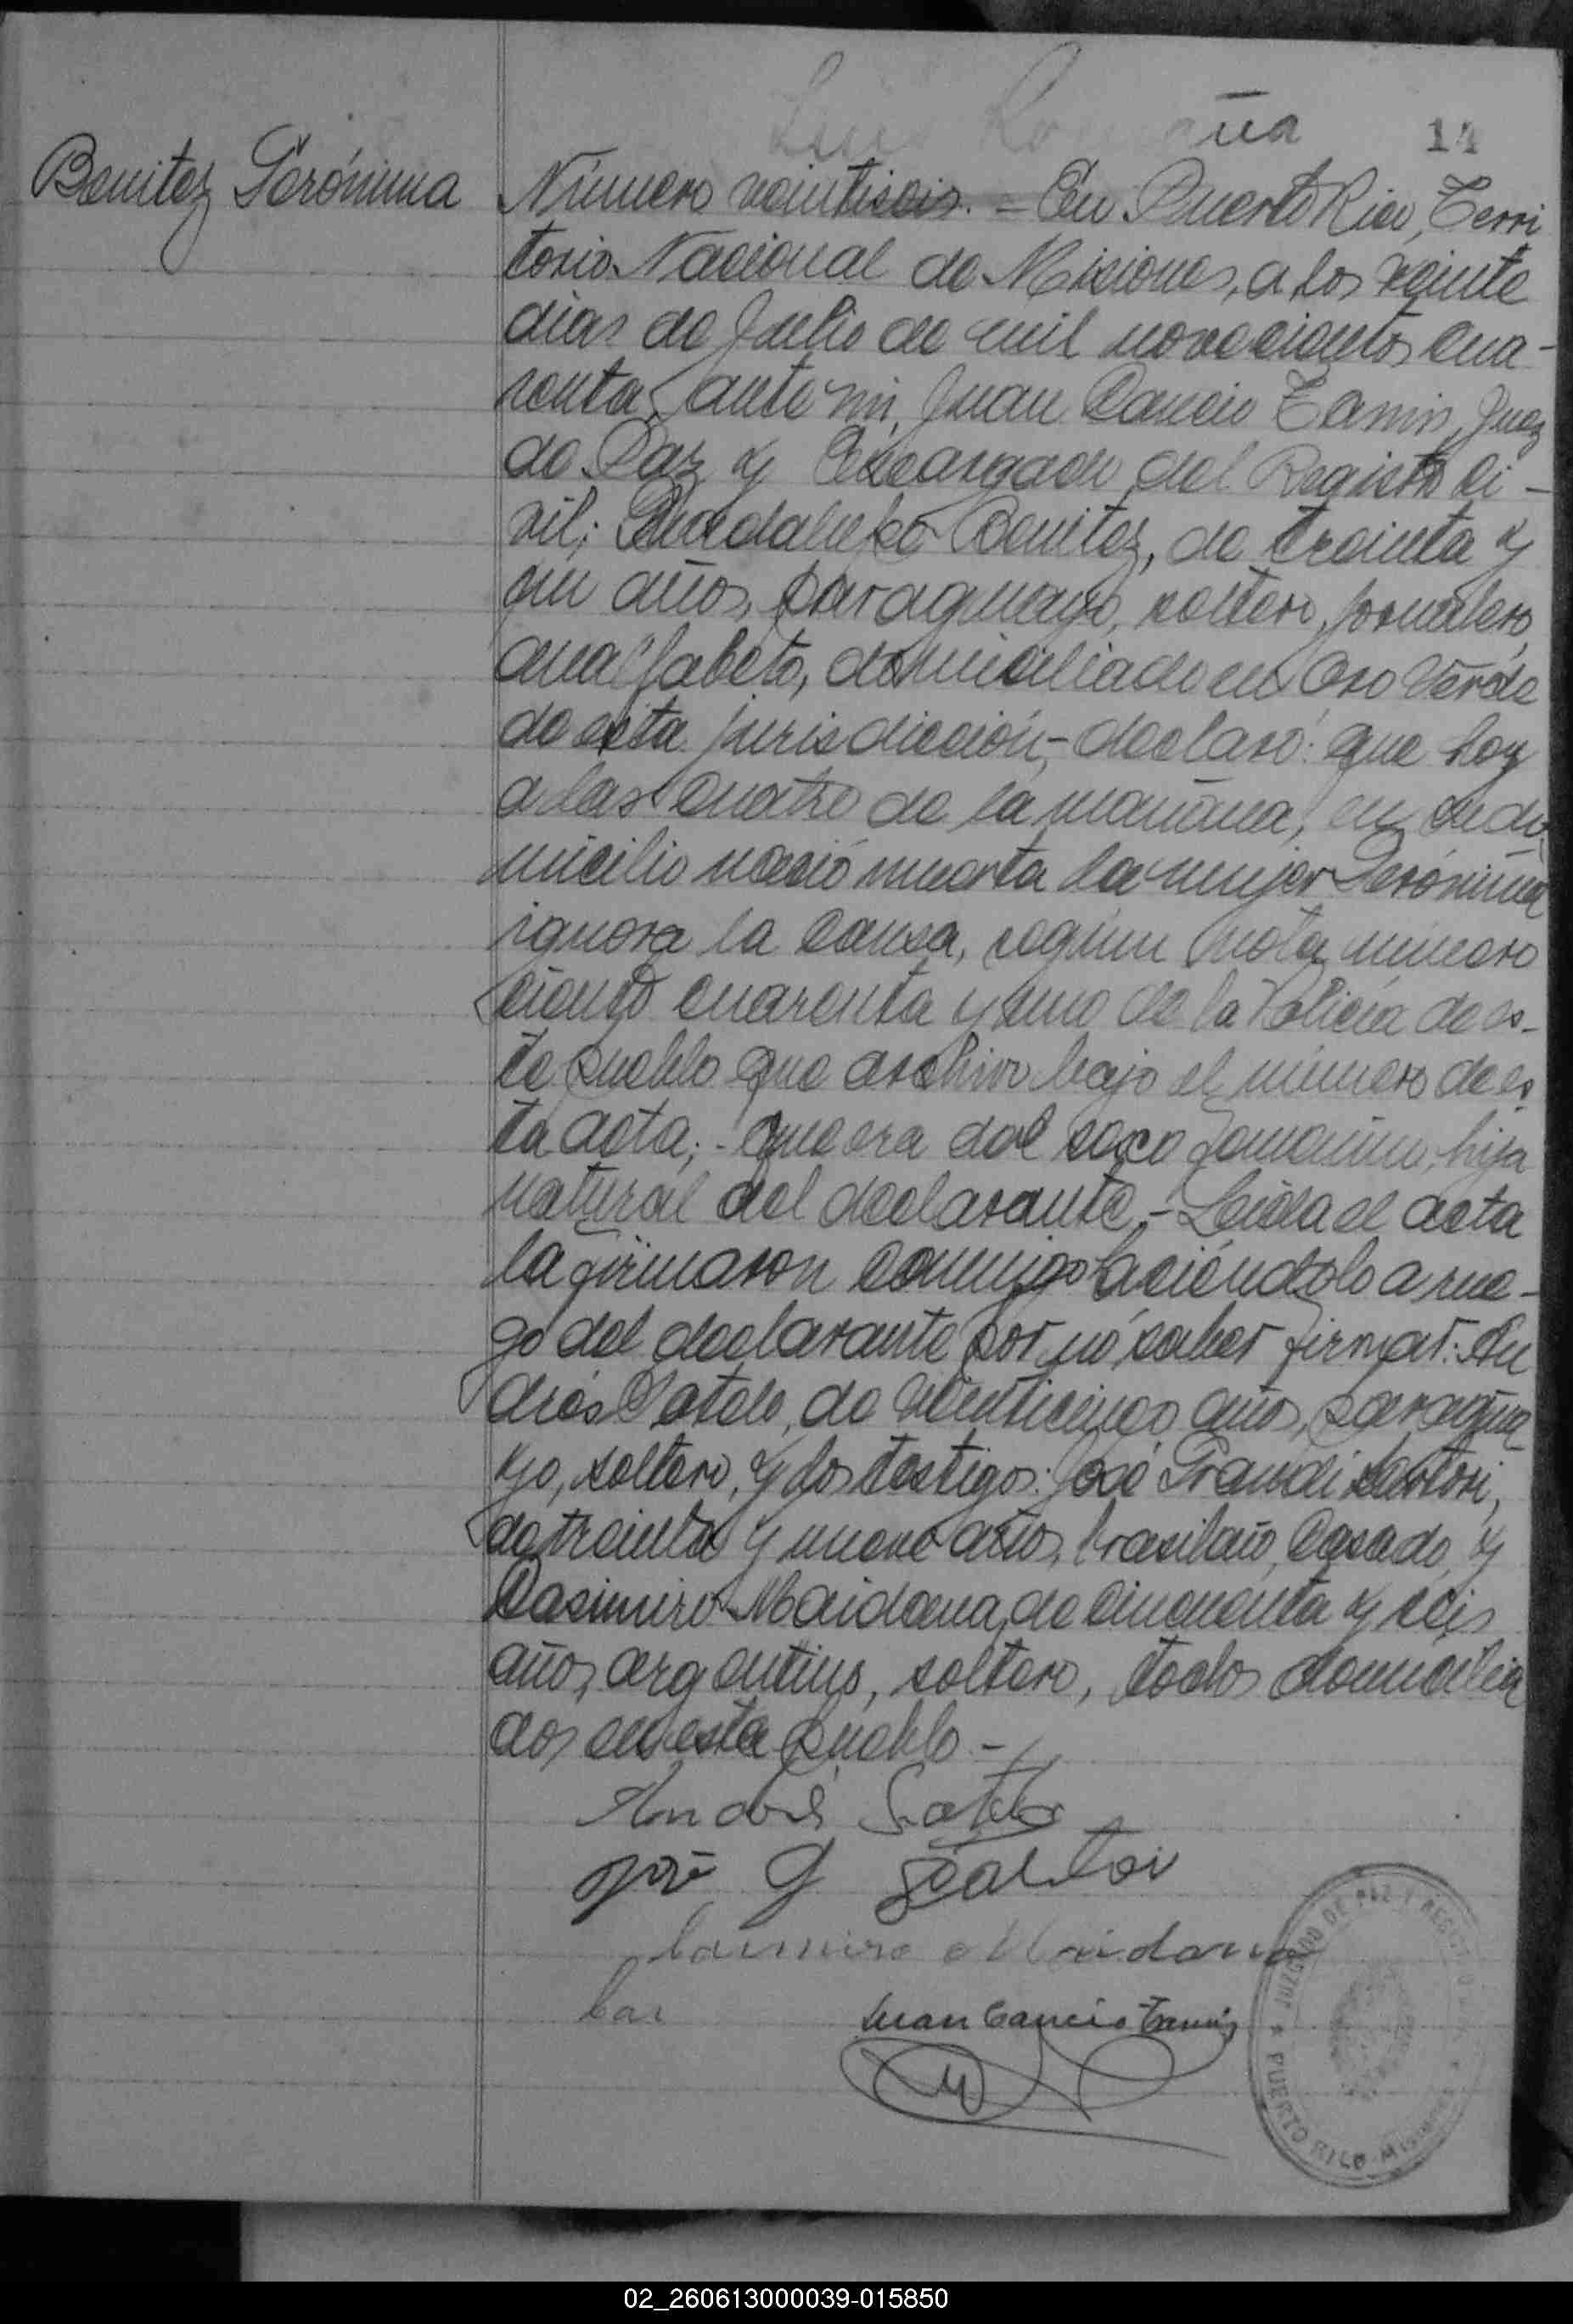 ña 14
Benitez Gerónima
Número veintiseis. = En Puerto Rico, Terri
torio Nacional de Misiones, a los veinte
dias de Julio de mil novecientos cua-
renta, ante mi, Juan Cancio Tamis, Juez
de Paz y Encargado del Registro Ci-
vil; Guadalupe Benitez, de treinta y
un años, paraguayo, soltero, jornalero,
analfabeto, domiciliado en Oro Verde
de esta jurisdicción,- declaró: que hoy
a las cuatro de la mañana, en su do
micilio nació muerta la mujer Gerónima
ignora la causa, según nota número
ciento cuarenta y uno de la Policía de es-
te pueblo que archivo bajo el número de es
ta acta;- que era del sexo femenino, hija
natural del declarante.- Leída el acta
la firmaron conmigo haciéndolo a rue-
go del declarante por nó saber firmar: An
drés Sotelo, de veinticinco años, paragua
yo, soltero, y los testigos: José Grandi Sartori,
de treinta y nueve años, brasilaño, casado, y
Casimiro Maidana, de cincuenta y seis
años, argentino, soltero, todos domicilia
dos en esta pueblo -
Andrés Sotelo
José G Sartori
Casimiro Maidana
Cas
Juan Cancio Tamis
JUZGADO DE PAZ Y REGISTRO
PUERTO RICO - MISIONES
02_260613000039-015850